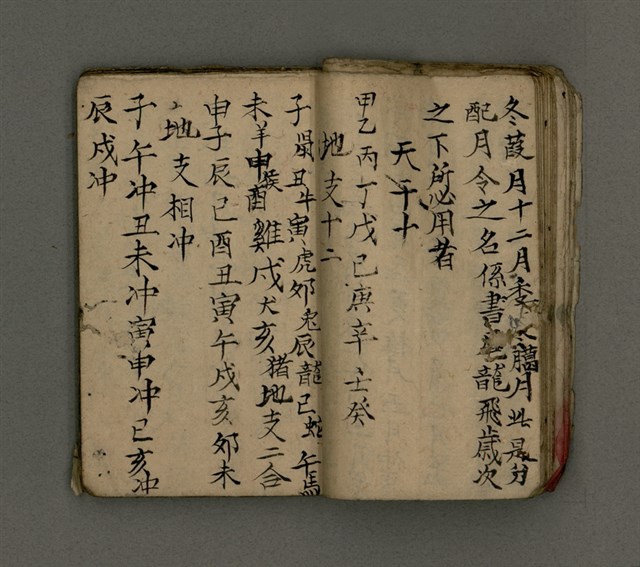 冬葭月十二月季冬臘月此是分
配月令之名係書龍飛歲次
之下所必用者
天干十
甲乙丙丁戊己庚辛壬癸
地支十二
子鼠丑牛寅虎夘兎辰龍巳蛇午馬
未羊申猴酉雞戍犬亥猪地支三合
申子辰巳酉丑寅午戍亥夘未
地支相冲
子午冲丑未冲寅申冲巳亥冲
辰戍冲